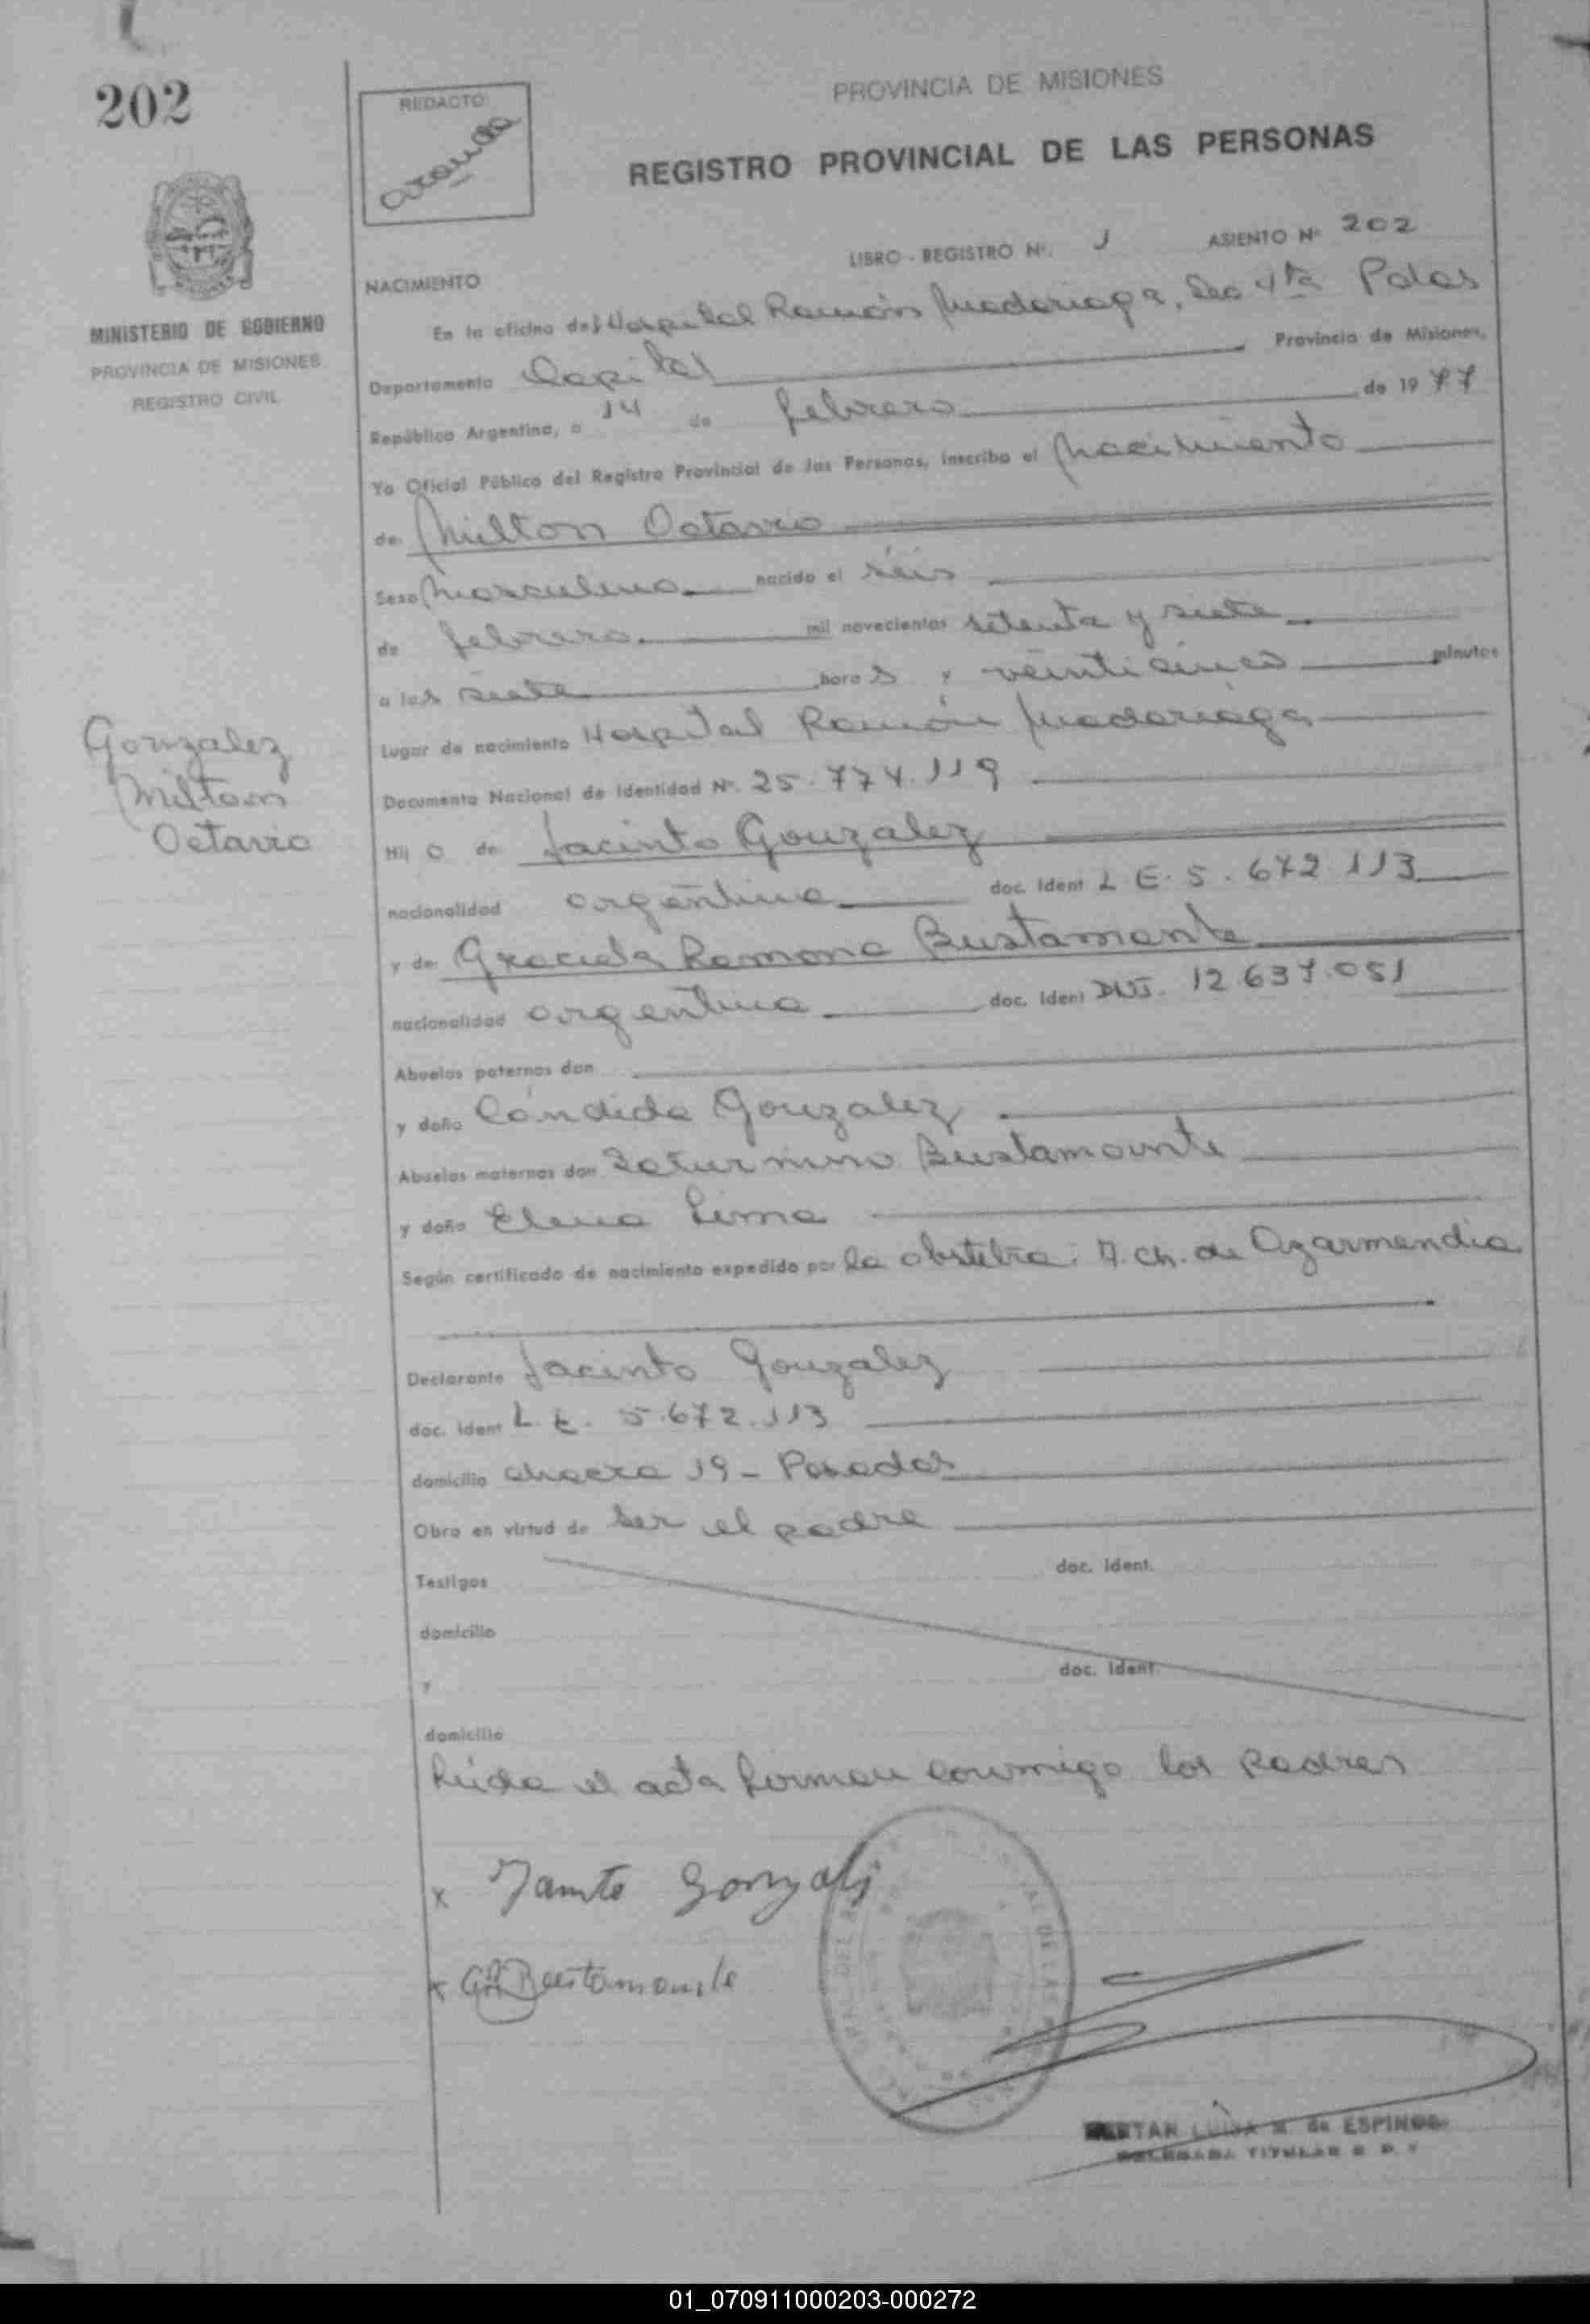 202
REDACTO:
PROVINCIA DE MISIONES
REGISTRO PROVINCIAL DE LAS PERSONAS
LIBRO - REGISTRO Nº. 1 ASIENTO Nº 202
NACIMIENTO
MINISTERIO DE GOBIERNO
PROVINCIA DE MISIONES
REGISTRO CIVIL
En la oficina del Hospital Ramón Madariaga, Sec 4ta Pdas
Departamento Capital Provincia de Misiones,
República Argentina, a 14 de febrero de 1977
Yo Oficial Público del Registro Provincial de las Personas, inscribo el Nacimiento
de Milton Octavio
Sexo Masculino nacido el seis
de febrero mil novecientos setenta y siete
a las siete horas y veinticinco minutos
Lugar de nacimiento Hospital Ramón Madariaga
Gonzalez
Milton
Octavio
Documento Nacional de Identidad Nº. 25.774.119
Hijo de Jacinto Gonzalez
nacionalidad argentina doc. Ident L.E. 5.672.113
y de Graciela Ramona Bustamante
nacionalidad argentina doc. Ident DNI. 12.637.051
Abuelos paternos don
y doña Cándida Gonzalez
Abuelos maternos don Saturnino Bustamante
y doña Elena Lima
Según certificado de nacimiento expedido por la obstetra: A. Ch. de Azarmendia
Declarante Jacinto Gonzalez
doc. ident L.E. 5.672.113
domicilio chacra 19 - Posadas
Obra en virtud de ser el padre
Testigos doc. Ident.
domicilio
y doc. Ident.
domicilio
Leída el acta firman conmigo los padres
x Jacinto Gonzalez
x GR Bustamante
LUISA M de ESPINOS
TITULAR
01_070911000203-000272